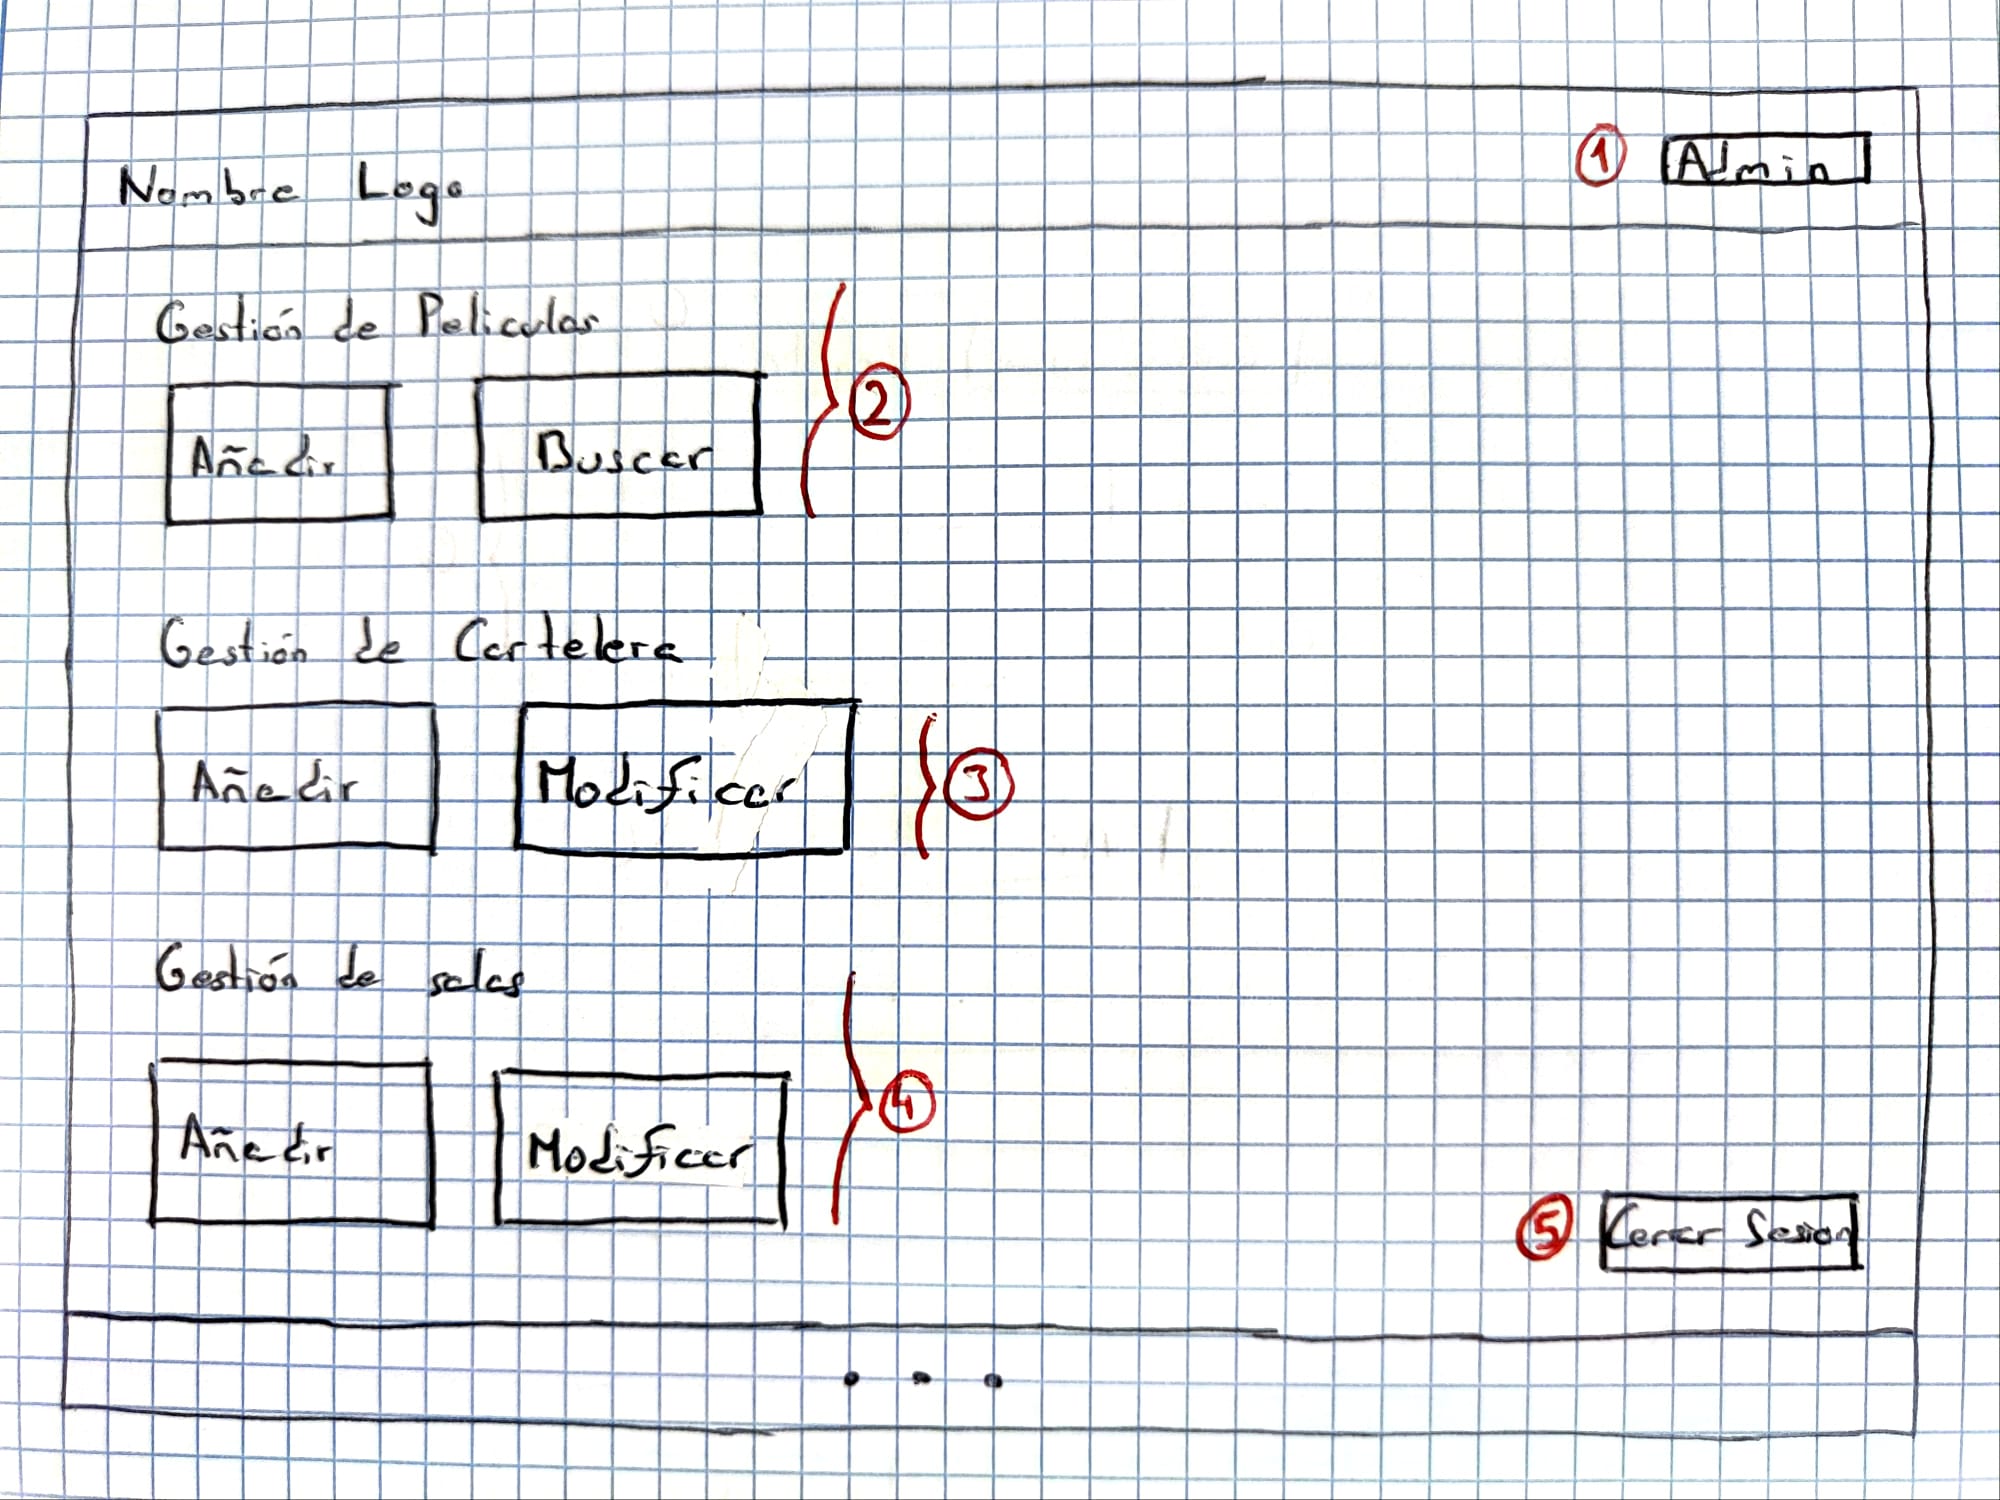 Nombre Logo
1 Admin
Gestión de Peliculas
Añadir Buscar 2
Gestión de Cartelera
Añadir Modificar 3
Gestión de salas
Añadir Modificar 4
5 Cerrar Sesion